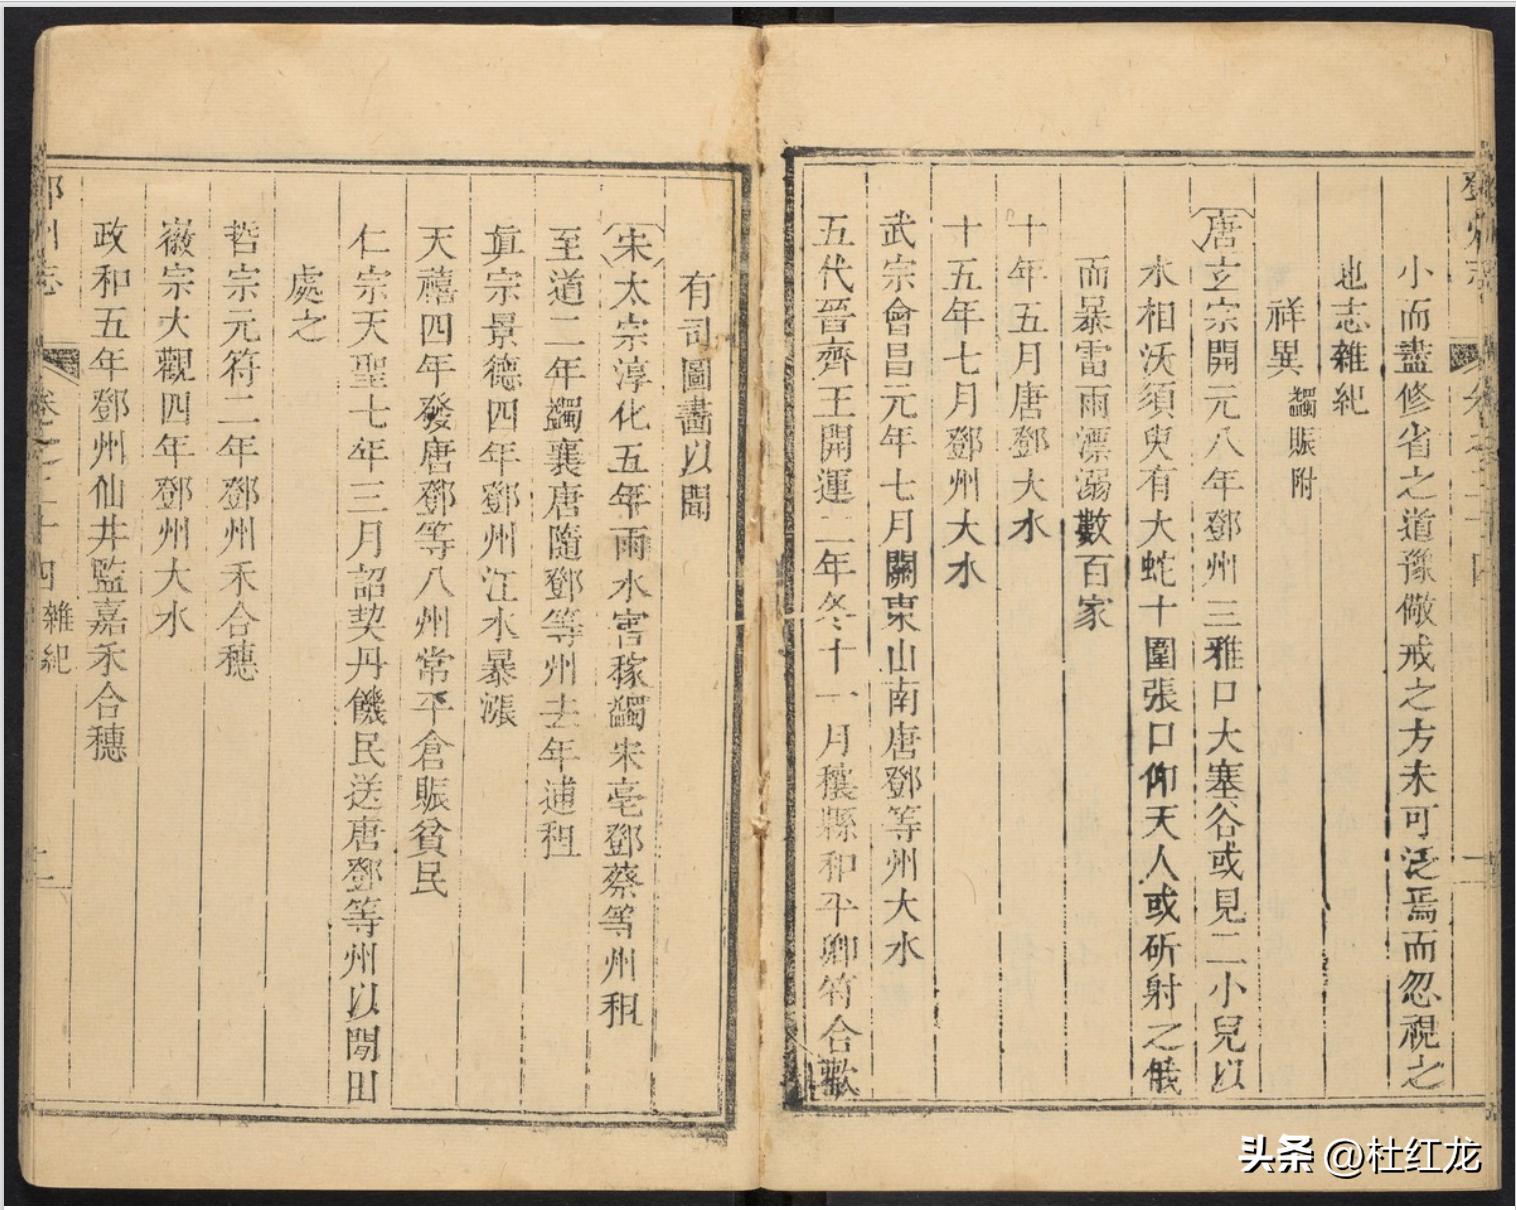 鄧州志
卷之二十四
小而盡修省之道豫儆戒之方未可泛焉而忽視之
也志雜紀
祥異 蠲賑附
唐玄宗開元八年鄧州三雅口大塞谷或見二小兒以
水相沃須臾有大蛇十圍張口仰天人或斫射之俄
而暴雷雨漂溺數百家
十年五月唐鄧大水
十五年七月鄧州大水
武宗會昌元年七月關東山南唐鄧等州大水
五代晉齊王開運二年冬十一月穰縣和平鄉竹合歡
有司圖畫以聞
宋太宗淳化五年雨水害稼蠲宋亳鄧蔡等州租
至道二年蠲襄唐隨鄧等州去年逋租
眞宗景德四年鄧州江水暴漲
天禧四年發唐鄧等八州常平倉賑貧民
仁宗天聖七年三月詔契丹饑民送唐鄧等州以閒田
處之
哲宗元符二年鄧州禾合穗
徽宗大觀四年鄧州大水
政和五年鄧州仙井監嘉禾合穗
鄧州志
卷之二十四 雜紀
二
头条 @杜红龙